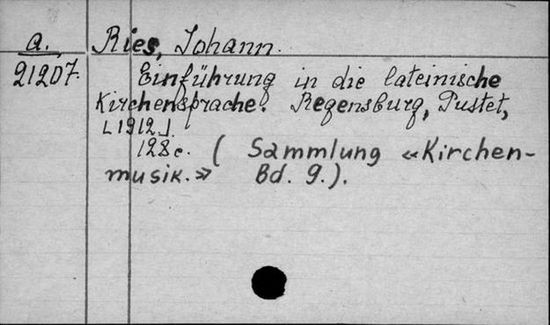 a. Ries, Johann.
21207. Einführung in die lateinische
Kirchensprache. Regensburg, Pustet,
[1912].
128c. (Sammlung «Kirchen-
musik.» Bd. 9.).